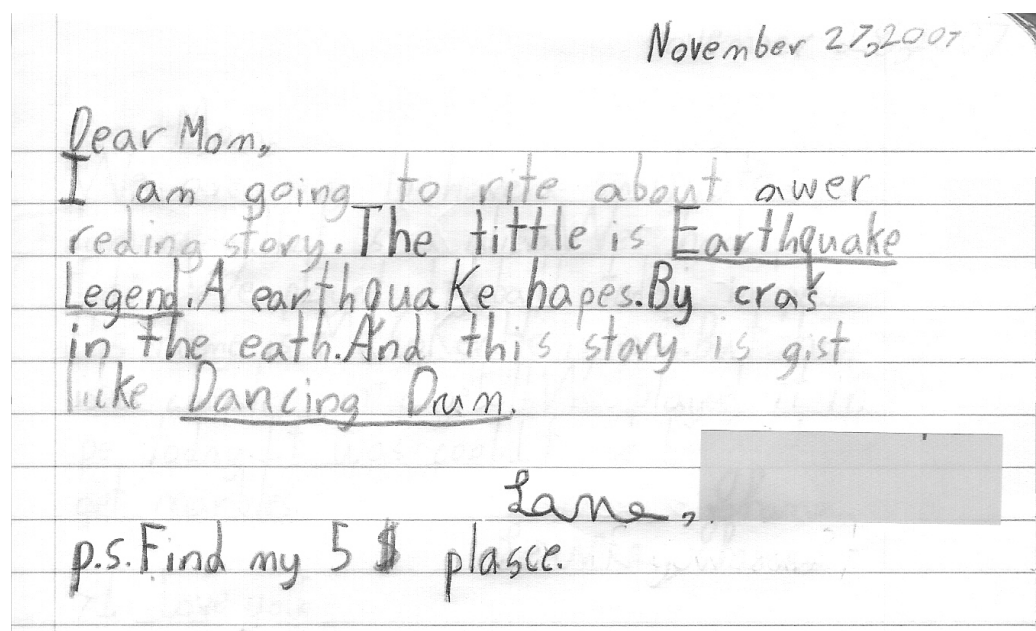 November 27, 2007
Dear Mom,
I am going to rite about awer
reding story. The tittle is Earthquake
Legend. A earthquake hapes. By cras
in the eath. And this story is gist
like Dancing Drum.
Lane,
p.s. Find my 5 $ plasce.